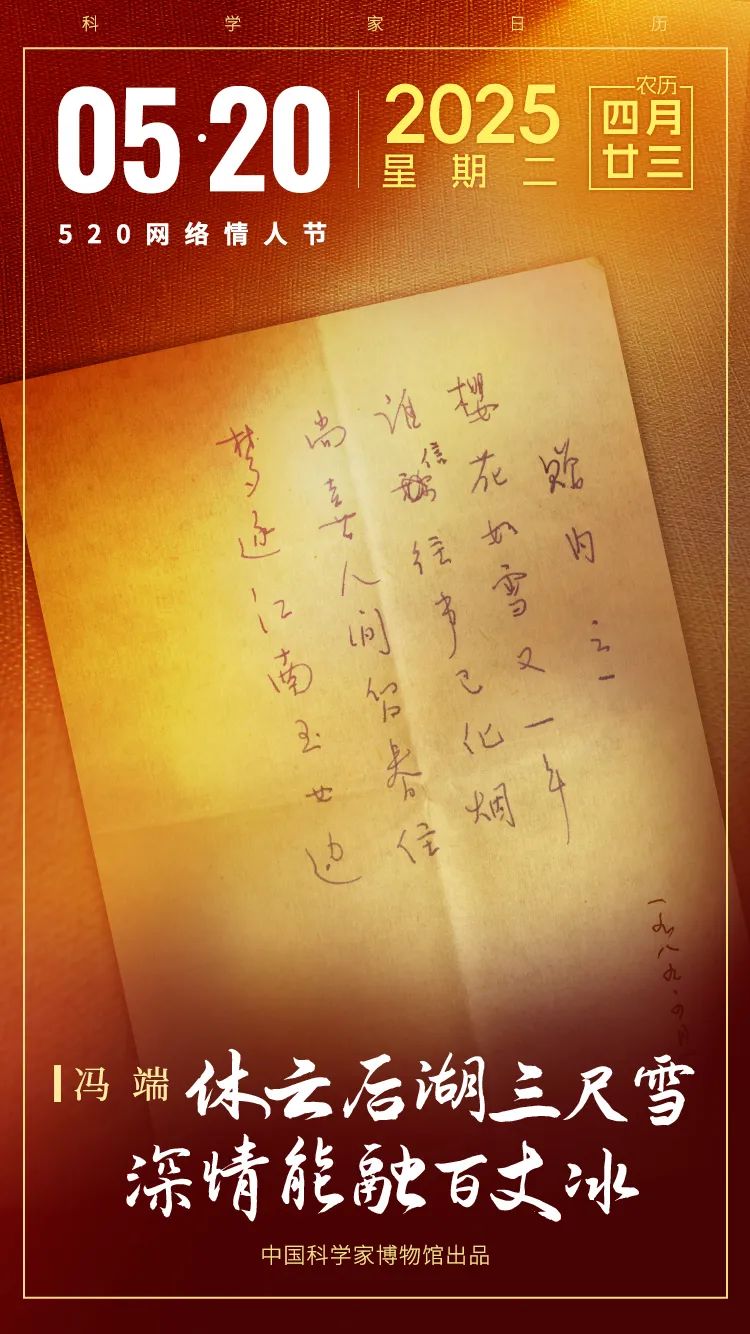 科学家日历
05·20
2025
星期二
农历
四月
廿三
520网络情人节
赠内 之一
樱花如雪又一年
谁信往事已化烟
尚喜人间留春住
梦逐江南玉女边
一九八九·四月
冯端
休云后湖三尺雪
深情能融百丈冰
中国科学家博物馆出品